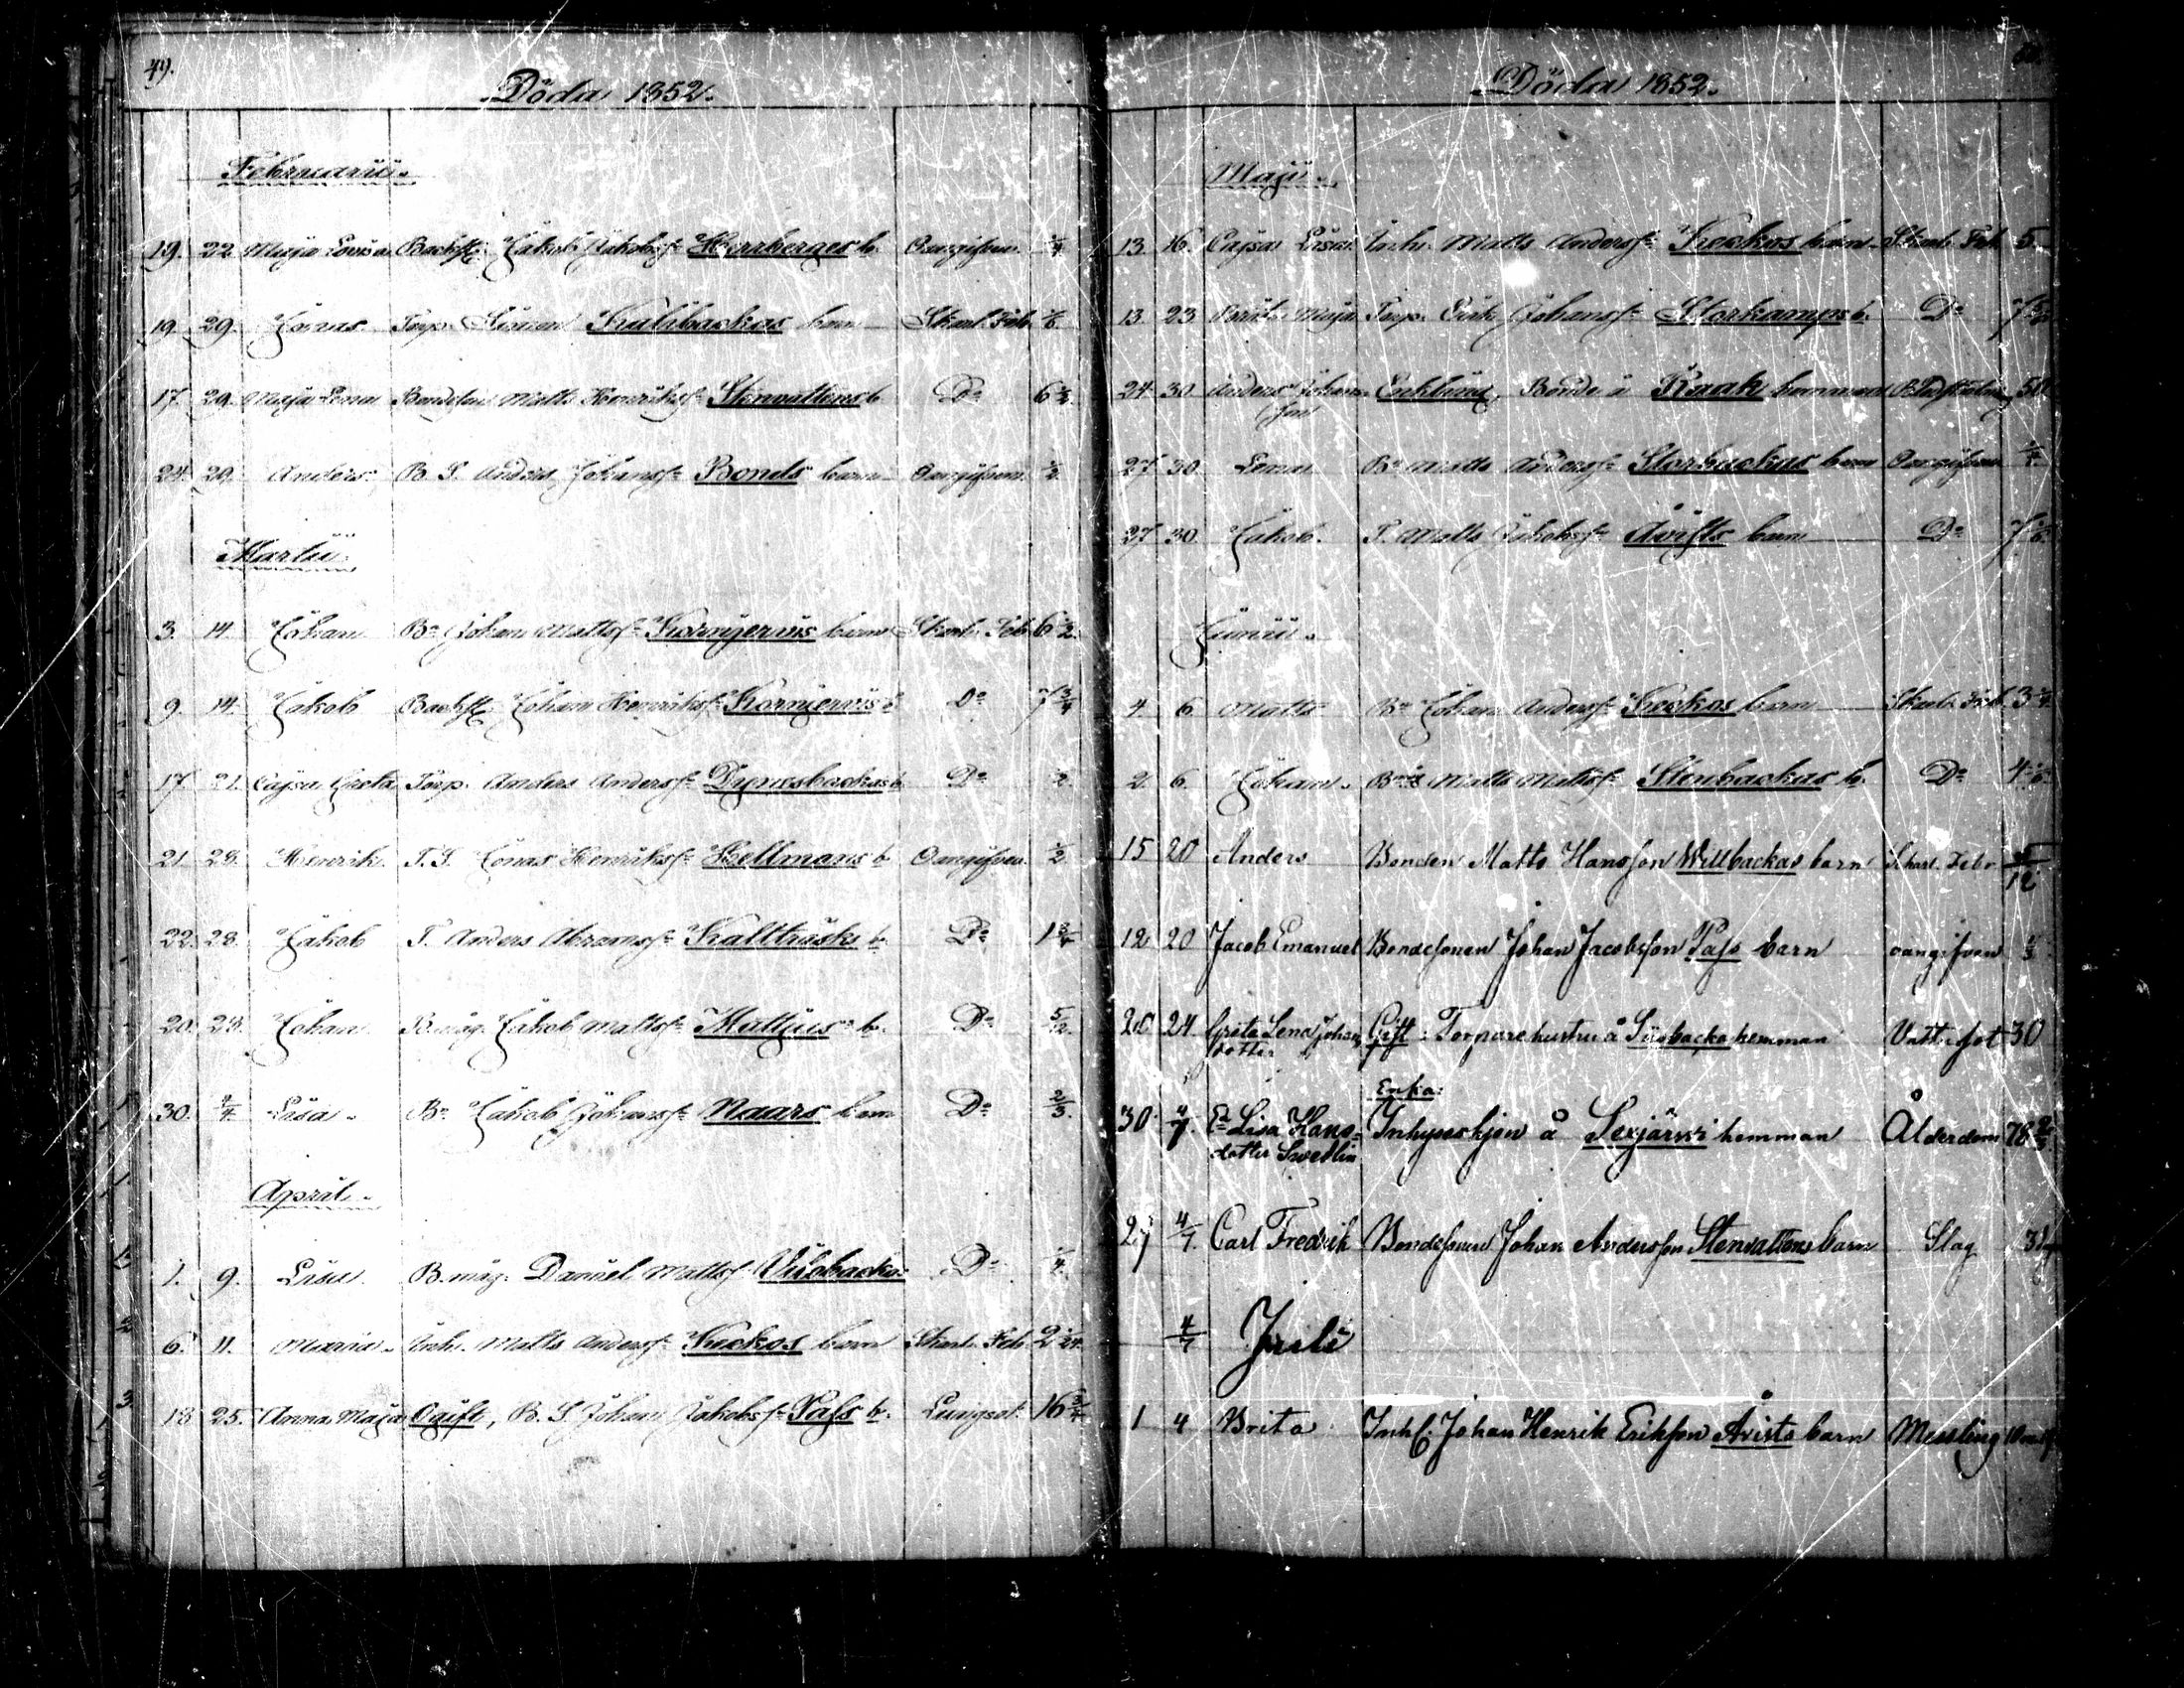 49.
Döda 1852.
Februarii.
19. 22. Maja Lovisa Backst. Jakob Jakobss. Herrberges b. Oangifven.
19. 29. Jonas Torp. Simon barn Skarl. Feb.
17. 29. Maja Lena Bondeson Matts Henrikss. Stenvattens b. Do 6 1/2.
24. 29. Anders. B. S. Anders Johanss. Bonds barn Oangifven. 1/2.
Martii.
3. 14. Johan Bn Johan Mattss. Kornjervis barn Skarl. Feb. 6 1/2.
9. 14. Jakob Backst. Johan Henrikss. Kornjervis b. Do 7 3/4
17. 21. Cajsa Greta Torp. Anders Anderss. b. Do 1/2.
21. 28. Henrik. T. S. Jonas Henrikss. Hellmans b. Oangifven. 1/2
22. 28. Jakob T. Anders Abramss. Kaltträsks b. Do 1 3/4
20. 28. Johan B.måg. Jakob Mattss. Mattjus b. Do 5/12.
30. 4/4 Lisa. Bn Jakob Johanss. Naars barn Do 2/3.
April.
1. 9. Lisa B.måg. Daniel Mattss. Do
6. 11. Maria. Inh. Matts Anderss. Keckos barn Skarl. Feb. 2 1/24.
18 25. Anna Maja Ogift, B. S. Johan Jakobss. Pass b. Lungsot. 16 3/4
Döda 1852.
Maji.
13. 16. Cajsa Lisa. Inh. Matts Anderss. Keckos barn. Skarl. Feb. 5.
13. 23 Brita Maja Torp. Erik Johanss. Storkamps b. Do
24 30 Anders Johans- Encklund, Bonde å Kaak hemman 50
son
27. 30. Lena Bn Matts Anderss. Storbackas barn Oangifven 1/4.
27 30. Jakob. T. Matts Jakobss. Åvists barn Do
Junii.
4. 6 Matts Bn Johan Anderss. Keckos barn Skarl. Feb. 3 1/4.
2. 6. Johan. Matts Mattss. Stenbackas b. Do 4 1/6.
15 20 Anders Bonden Matts Hansson Willbackas barn Skarl. Feber 5/12
12 20 Jacob Emanuel Bondesonen Johan Jacobsson Pass barn oangifven
20 24 Greta Lena Johans Gift: Torparehustru å hemman Vattusot 30
dotter
Enka:
30. 4/7. Lisa Hans= Inhyseshjon å Sexjärwi hemman Ålderdom 78 2/3
dotter Swedlin
29 4/7. Carl Fredrik Bondesonen Johan Andersson Stenvattens barn Slag
4/7 Juli
1 4 Brita Inhs. Johan Henrik Eriksson Åvists barn Messling